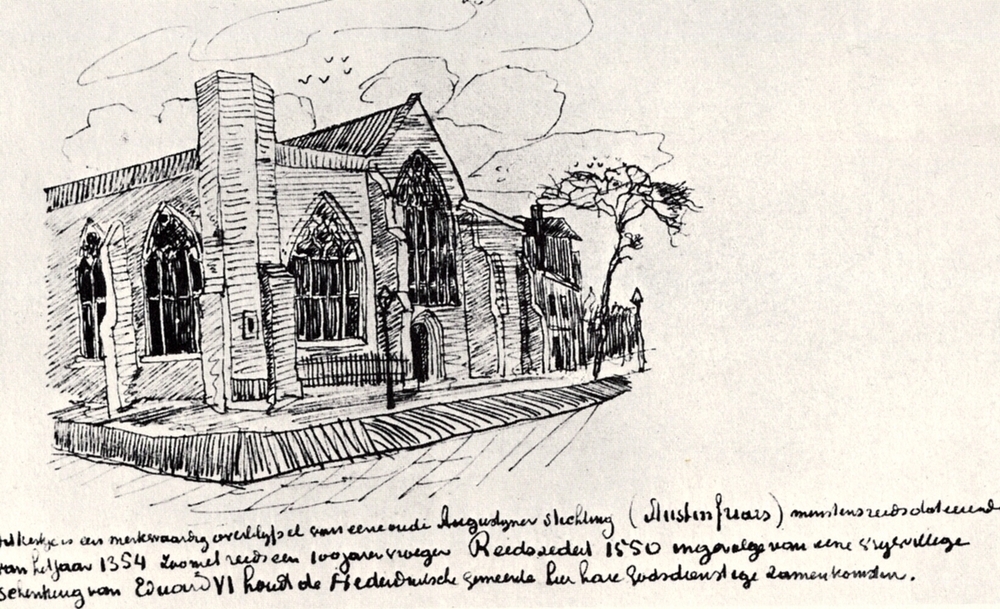 Het kerkje is een merkwaardig overblijfsel van eene oude Augustyner stichting (Austinfriars) minstens reeds dateerend
van het jaar 1354 zoo niet reeds een 100 jaren vroeger Reeds sedert 1550 ingevolge van eene vrijwillige
schenking van Eduard VI houdt de Nederduitsche gemeente hier hare Godsdienstige zamenkomsten.